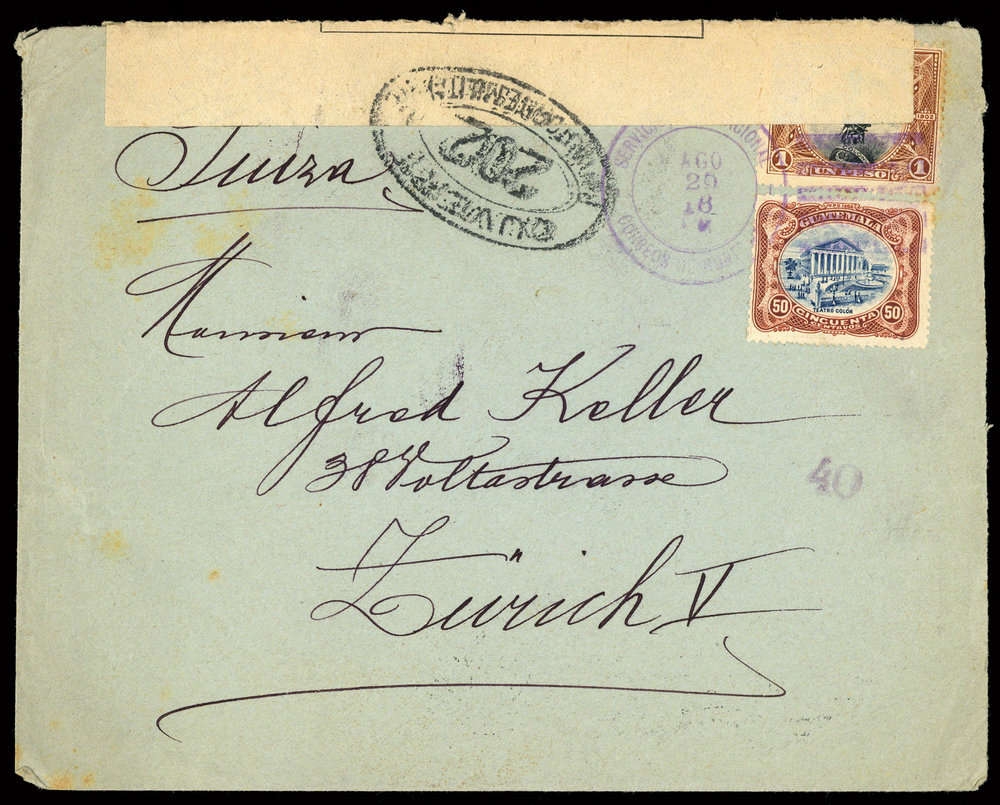 Suiza
Monsieur
Alfred Keller
38 Voltastrasse
Zürich V
202
SERVICIO
AGO
29
18
CORREOS
40
1 UN PESO 1
1902
GUATEMALA
TEATRO COLÓN
50 CINCUENTA 50
CENTAVOS